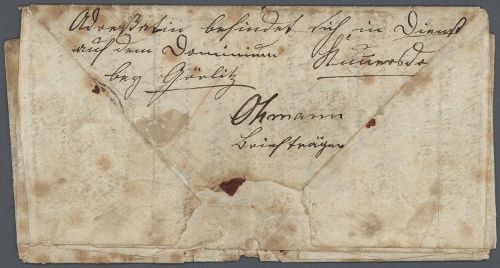 Adreßatin befindet sich in Dienst
auf dem Dominium
bey Görlitz
Ohmann
Briefträger